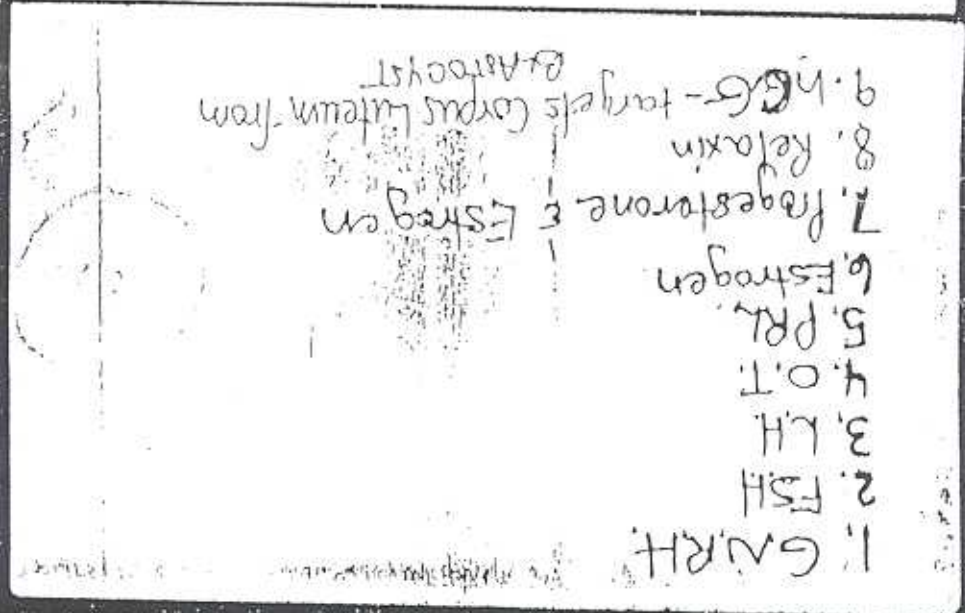 1. G.N.R.H.
2. F.S.H
3. L.H.
4. O.T.
5. PRL.
6. Estrogen
7. Progesterone & Estrogen
8. Relaxin
9. hCG - targets Corpus Luteum from
BLASTOCYST